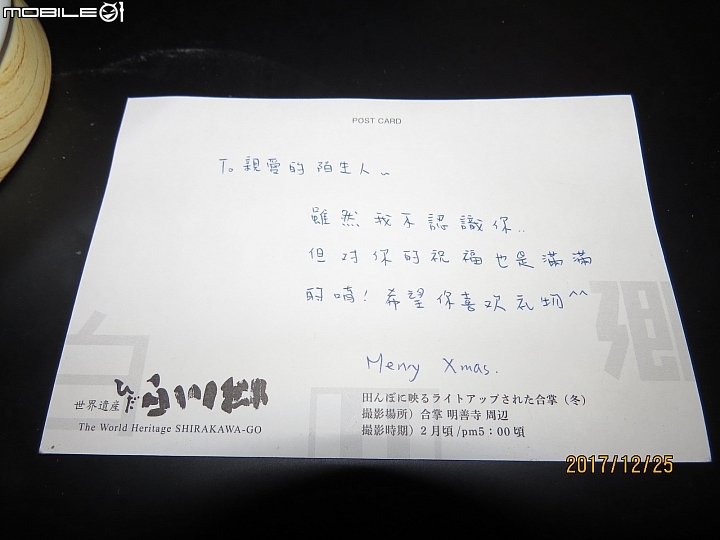 MOBILE01
POST CARD
To 親愛的陌生人~
雖然我不認識你..
但对你的祝福也是滿滿
的唷！希望你喜欢礼物^^
Merry Xmas.
世界遺産 ひだ 白川郷
The World Heritage SHIRAKAWA-GO
田んぼに映るライトアップされた合掌（冬）
撮影場所）合掌 明善寺 周辺
撮影時期）2月頃/pm5：00頃
2017/12/25